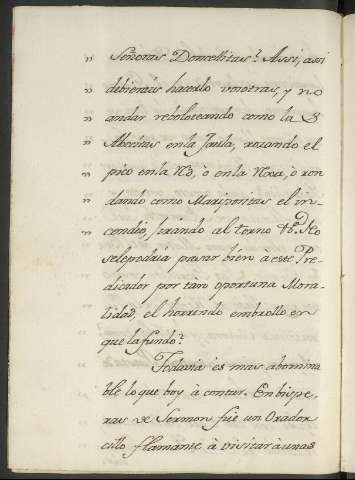 " Señoras Doncellitas? Assi, assi
" debierais hacerlo vosotras, y no
" andar reboloteando como la S
" Abechas en la Jaula, rozando el
" pico en la
" dando como Mariposas el in-
" cendio, al torno
se le podria pasar bien à este Pre-
dicador por tàn oportuna Mora-
lidad, el horrendo embrollo en
que la fundo?
Todavia es mas abomina
ble lo que boy à contar. En bispe-
ras de Sermon fuè un Orador
cillo flamante à visitar à unas